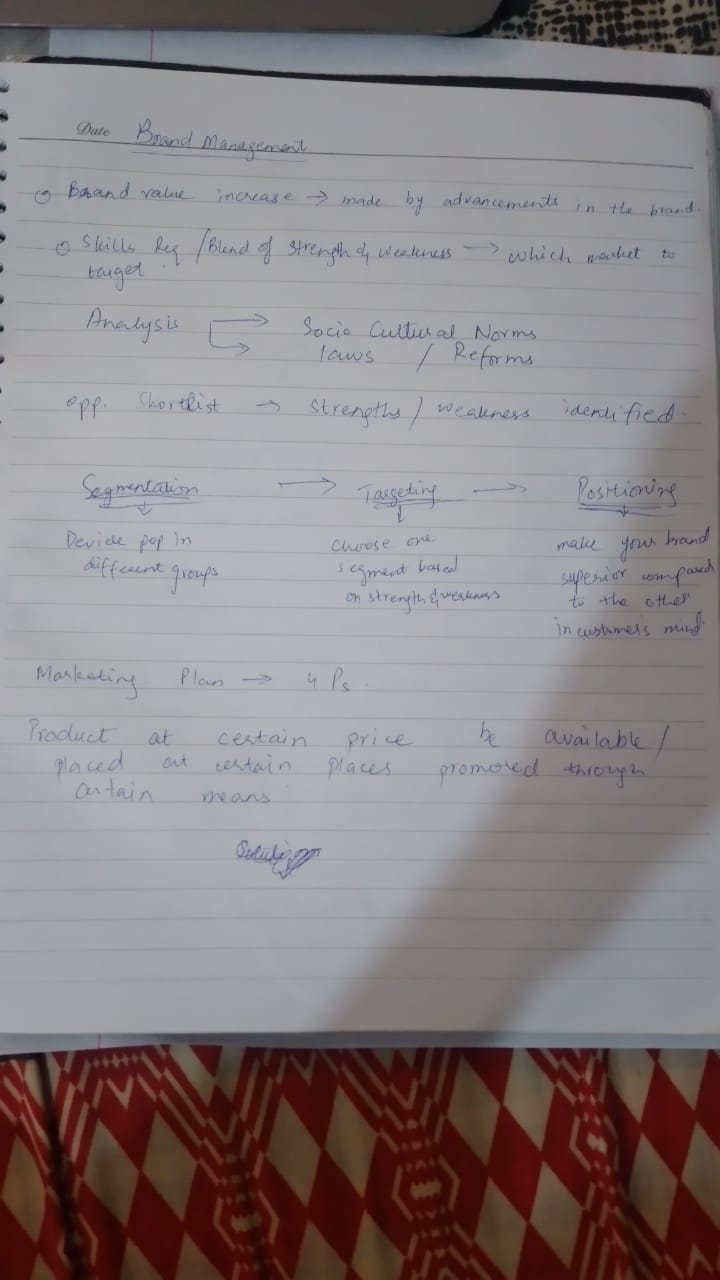 Date Brand Management
Brand value increase → made by advancements in the brand.
Skills Req / Blend of Strength & Weakness → which market to
target.
Analysis → Socio Cultural Norms
→ laws / Reforms
opp. Shortlist → Strengths / weakness identified.
Segmentation → Targeting → Positioning
Devide pop in choose one make your brand
different groups segment based superior compared
on strength & weakness to the other
in customers mind
Marketing Plan → 4 Ps.
Product at certain price be available /
placed at certain places promoted through
certain means